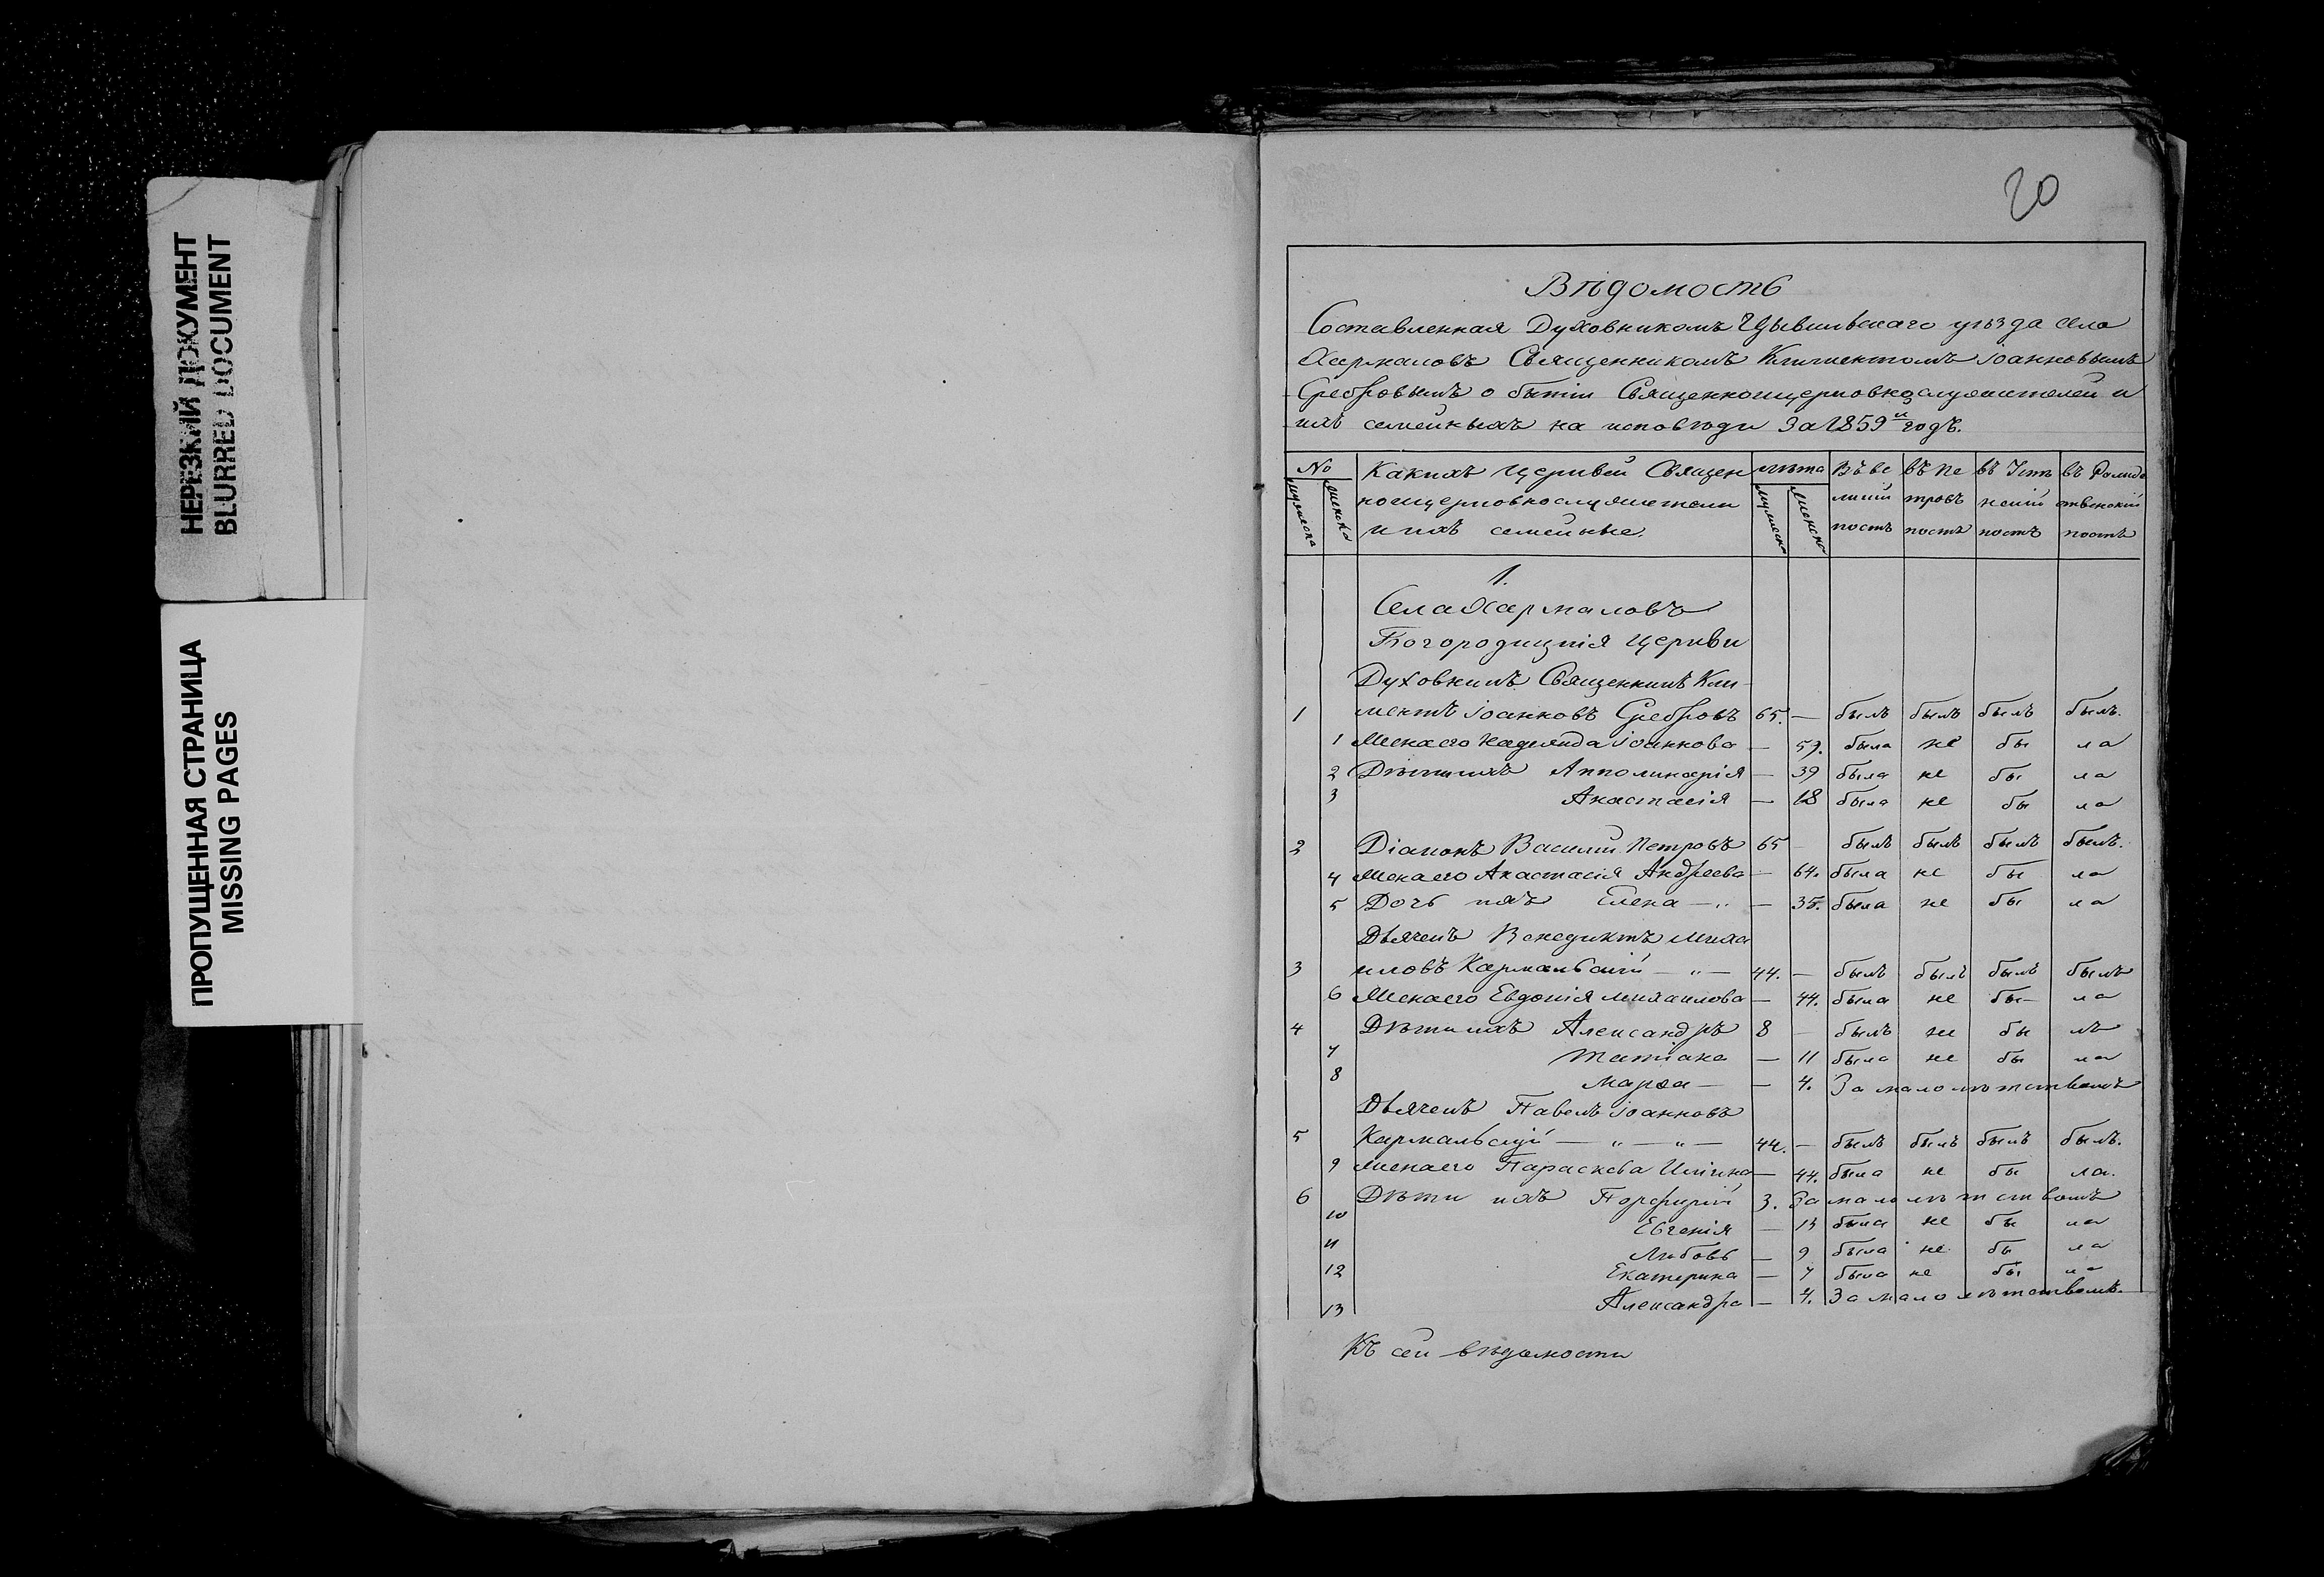 НЕРЕЗКИЙ ДОКУМЕНТ
BLURRED DOCUMENT
ПРОПУЩЕННАЯ СТРАНИЦА
MISSING PAGES
20
Вѣдомость
Составленная Духовникомъ Цывильскаго уѣзда села
Хормаловъ Священникомъ Климентомъ Іоанновымъ
Сребровымъ о бытіи Священноцерковнослужителей и
ихъ семейныхъ на исповѣди за 1859й годъ.
№ Какихъ Церквей Священ лѣта Въ ве въ Пе въ Успѣ въ Рожде
мужеска женска ноцерковнослужители мужеска женска ликій тровъ нскій ственскій
и ихъ семейные. постъ постъ постъ постъ
1.
Села Хормаловъ
Богородицкія Церкви
Духовникъ Священникъ Кли-
1 ментъ Іоанновъ Сребровъ 65. — былъ былъ былъ былъ.
1 Жена его Надежда Іоаннова — 59. была не бы ла
2 Дѣти ихъ Апполинарія — 39 была не бы ла
3 Анастасія — 18 была не бы ла
2 Діаконъ Василій Петровъ 65 — былъ былъ былъ былъ.
4 Жена его Анастасія Андреева — 64. была не бы ла
5 Дочь ихъ Елена — „ — 35. была не бы ла
Дьячекъ Венедиктъ Миха
3 иловъ Кармальскій — „ — 44. — былъ былъ былъ былъ
6 Жена его Евдокія Михаилова — 44. была не бы- ла
4 Дѣти ихъ Александръ 8 — былъ не бы лъ
7 Татіана — 11 была не бы ла
8 Марѳа — — 4. За малолѣтствомъ
Дьячекъ Павелъ Іоанновъ
5 Кармальскій — „ — „ — 44. — былъ былъ былъ былъ.
9 Жена его Параскева Ильина — 44. была не бы ла.
6 Дѣти ихъ Порфирій 3. За малолѣтствомъ
10 Евгенія — 13 была не бы ла
11 Любовь — 9 была не бы ла
12 Екатерина — 7 была не бы ла
13 Александра — 4. За малолѣтствомъ.
Къ сей вѣдомости